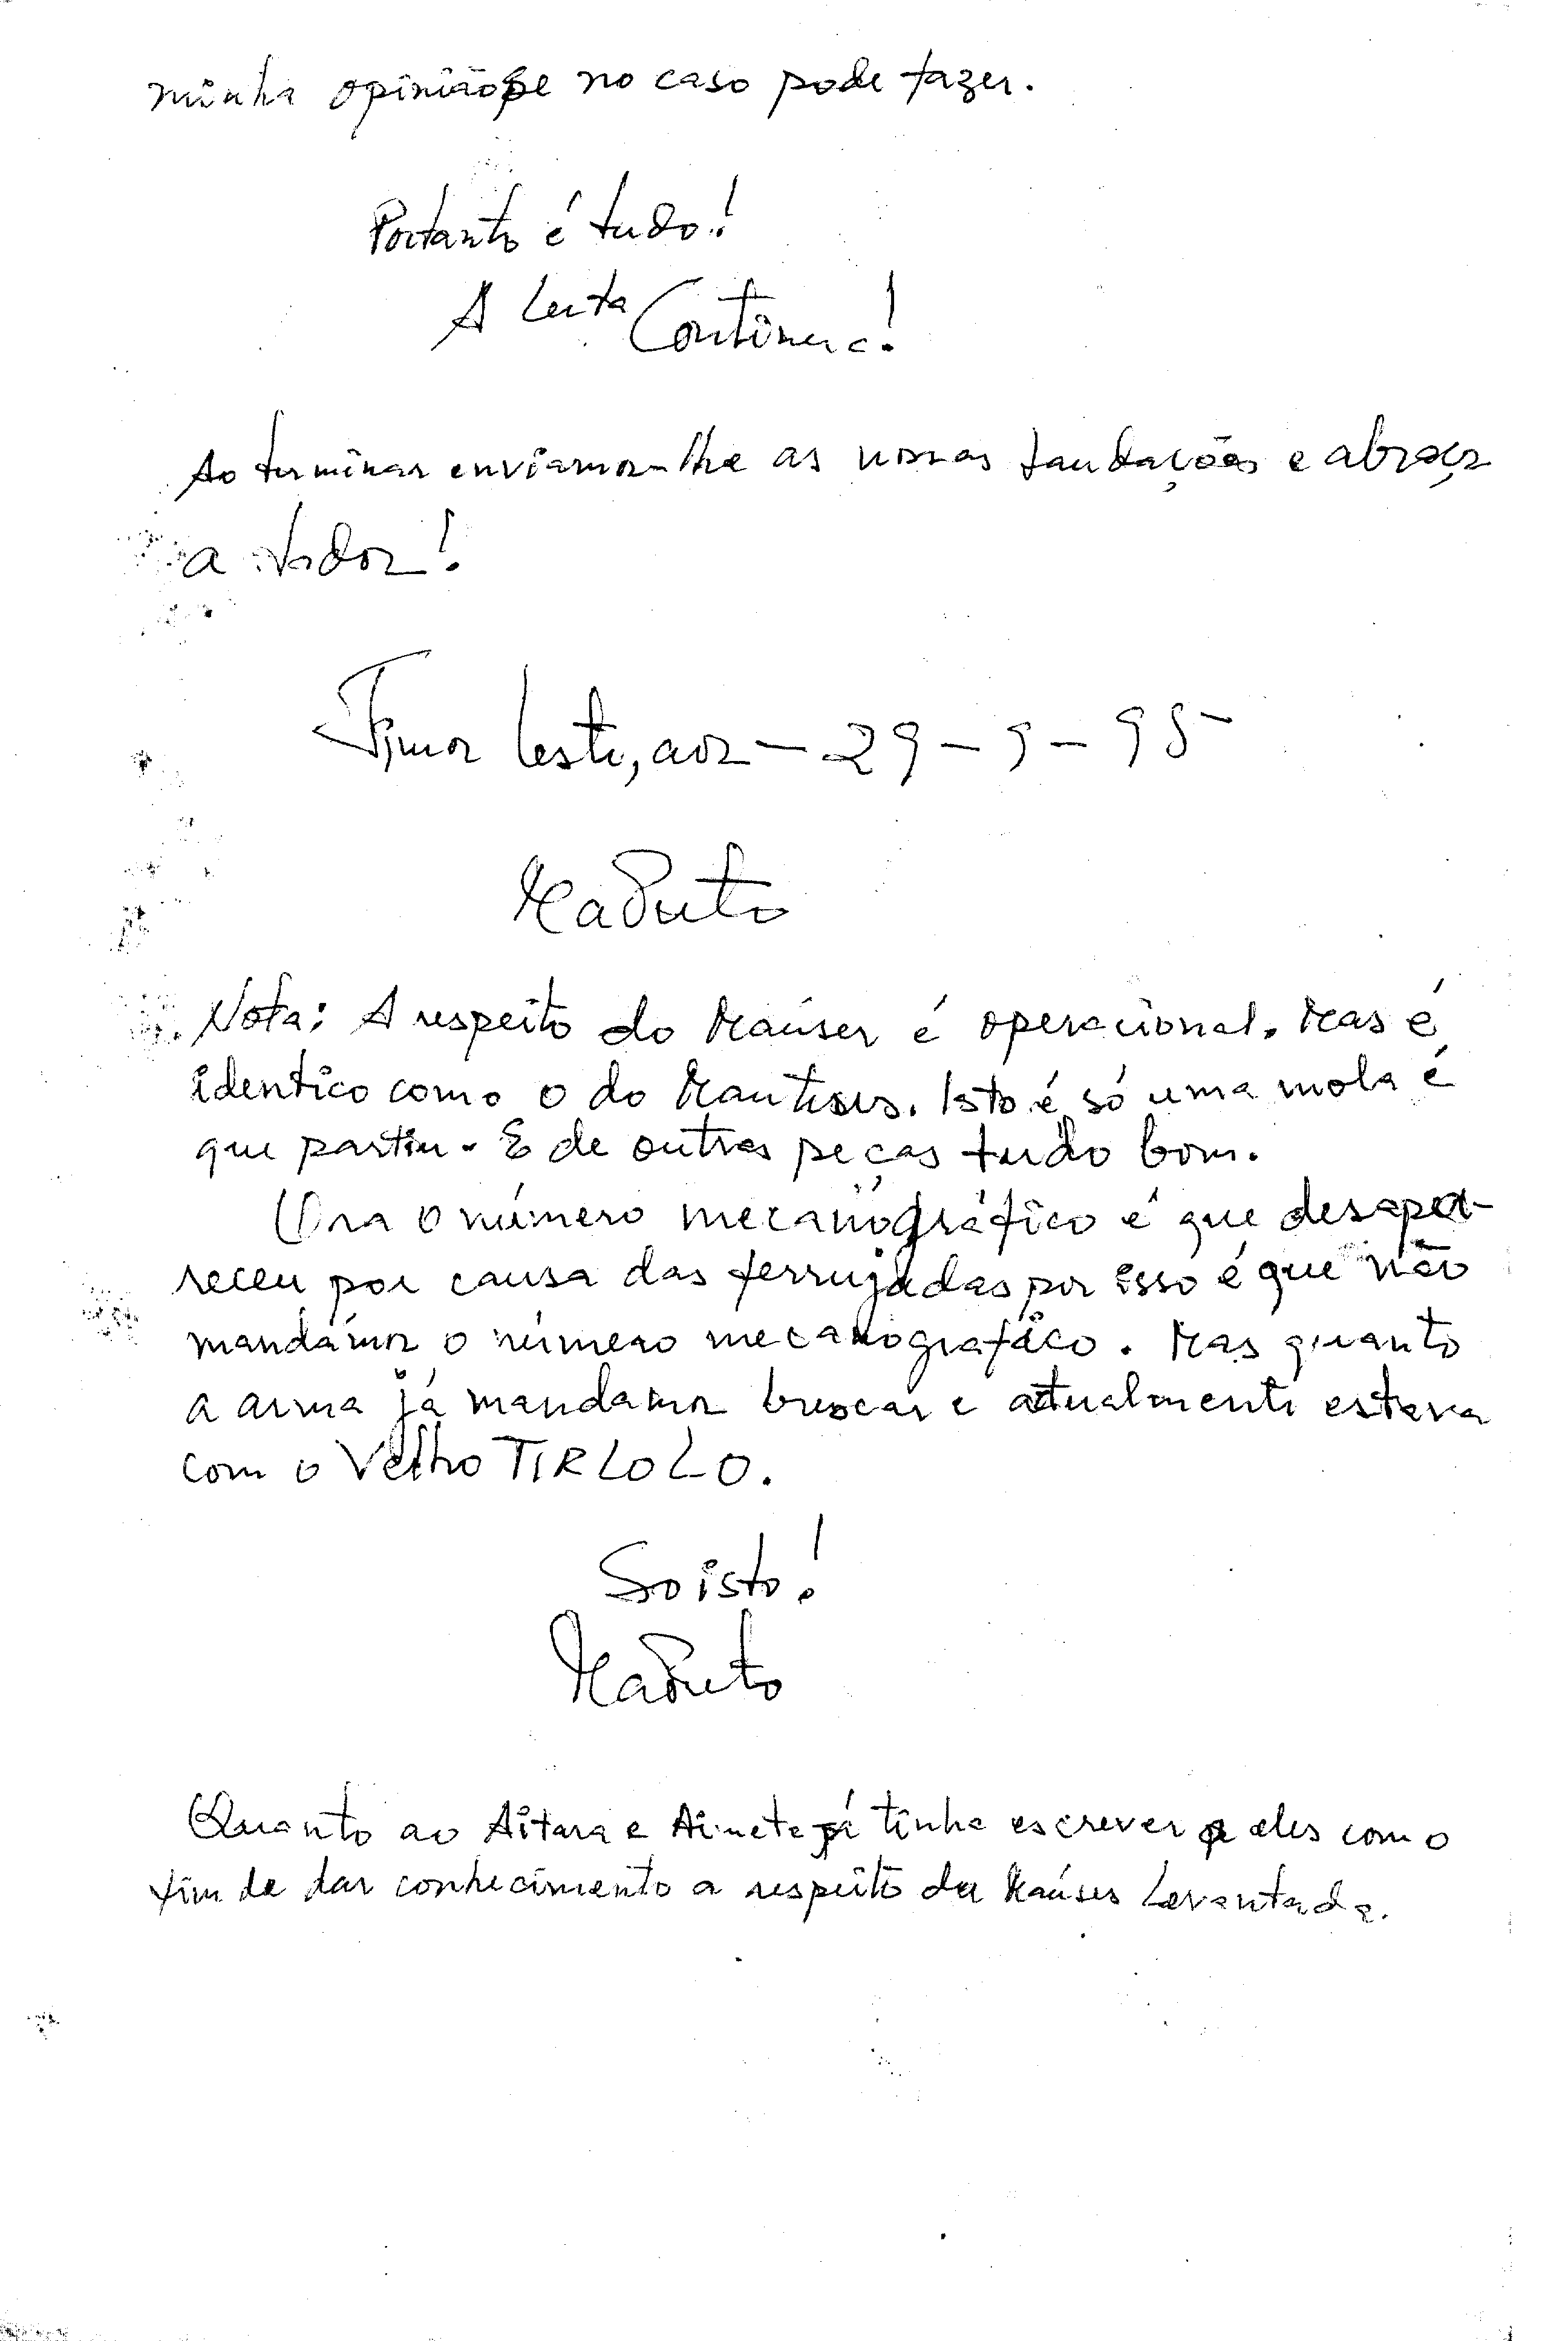 minha opinião se no caso pode fazer.
Portanto é tudo!
A Luta Continua!
Ao terminar enviamos-lhe as nossas saudações e abraços
a todos!
Timor Leste, aos - 29 - 9 - 95
Maduto
Nota: A respeito do Maúser é operacional. Mas é
identico como o do Mautersus. Isto é só uma mola é
que partiu. E de outras peças tudo bom.
Ora o número mecanográfico é que desapa-
receu por causa das ferrujadas por isso é que não
mandámos o número mecanografico. Mas quanto
a arma já mandamos buscar e atualmente estava
com o Velho TIRLOLO.
So isto!
Maduto
Quanto ao Aitara e já tinha escrever a eles com o
fim de dar conhecimento a respeito da Maúser Levantada.